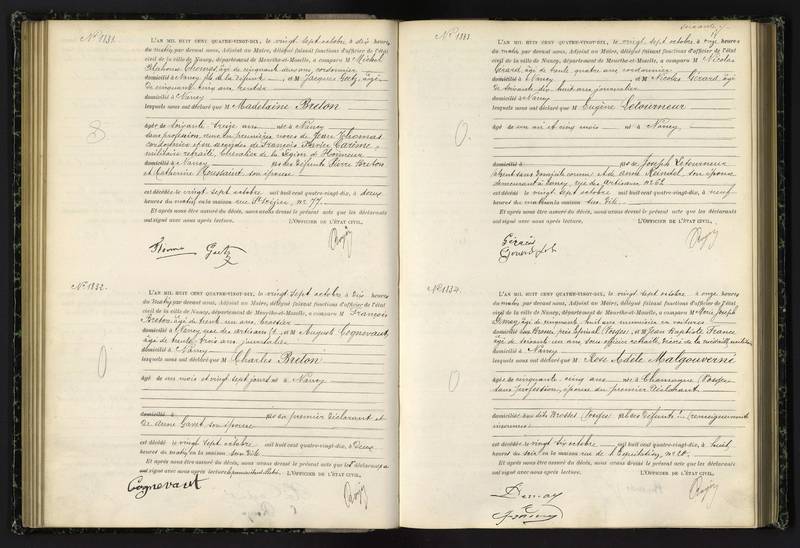 N° 1831.
L'AN MIL HUIT CENT QUATRE-VINGT-DIX, le vingt sept octobre à dix heures
du matin par devant nous, Adjoint au Maire, délégué faisant fonctions d'officier de l'état
civil de la ville de Nancy, département de Meurthe-et-Moselle, a comparu M Michel
Thomas, âgé de cinquante deux ans, cordonnier
domicilié à Nancy fils de la défunte, et M Jacques Goetz, âgé
de cinquante cinq ans
domicilié à Nancy
lesquels nous ont déclaré que M Madelaine Breton
âgée de soixante treize ans née à Nancy
sans profession, veuve en premières noces de Jean Thomas
cordonnier et en secondes de François Xavier Carême,
militaire retraité, Chevalier de la Légion d'Honneur
domiciliée à Nancy fille des défunts Pierre Breton
et Catherine Houssaint son épouse
est décédée le vingt sept octobre mil huit cent quatre-vingt-dix, à deux
heures du matin en la maison rue St Dizier, n° 77.
Et après nous être assuré du décès, nous avons dressé le présent acte que les déclarants
ont signé avec nous après lecture. L'OFFICIER DE L'ÉTAT CIVIL,
Thomas Goetz
N° 1832.
L'AN MIL HUIT CENT QUATRE-VINGT-DIX, le vingt sept octobre à dix heures
du matin par devant nous, Adjoint au Maire, délégué faisant fonctions d'officier de l'état
civil de la ville de Nancy, département de Meurthe-et-Moselle, a comparu M François
Breton, âgé de trente un ans
domicilié à Nancy, rue des artisans et M August Cognevaut,
âgé de trente trois ans journalier
domicilié à Nancy
lesquels nous ont déclaré que M Charles Breton
âgé de un mois et vingt sept jours né à Nancy
domicilié à fils du premier déclarant et
de Anne Gavet son épouse
est décédé le vingt sept octobre mil huit cent quatre-vingt-dix, à deux
heures du matin en la maison sus dite.
Et après nous être assuré du décès, nous avons dressé le présent acte que le déclarant
ont signé avec nous après lecture L'OFFICIER DE L'ÉTAT CIVIL,
Cognevaut
N° 1833.
L'AN MIL HUIT CENT QUATRE-VINGT-DIX, le vingt sept octobre à onze heures
du matin par devant nous, Adjoint au Maire, délégué faisant fonctions d'officier de l'état
civil de la ville de Nancy, département de Meurthe-et-Moselle, a comparu M Nicolas
Gérard, âgé de trente quatre ans, cordonnier
domicilié à Nancy et M Nicolas Gérard âgé
de soixante dix huit ans journalier
domicilié à Nancy
lesquels nous ont déclaré que M Eugène Letourneur
âgé de un an et cinq mois né à Nancy
domicilié à fils de Joseph Letourneur
absent sans domicile connu et de Anne Reindel son épouse
demeurant à Nancy, rue des artisans n° 62
est décédé le vingt sept octobre mil huit cent quatre-vingt-dix, à neuf
heures du matin en la maison sus dite.
Et après nous être assuré du décès, nous avons dressé le présent acte que les déclarants
ont signé avec nous après lecture. L'OFFICIER DE L'ÉTAT CIVIL,
N° 1834.
L'AN MIL HUIT CENT QUATRE-VINGT-DIX, le vingt sept octobre à onze heures
du matin par devant nous, Adjoint au Maire, délégué faisant fonctions d'officier de l'état
civil de la ville de Nancy, département de Meurthe-et-Moselle, a comparu M Marie Joseph
Demay, âgé de cinquante huit ans menuisier en voitures
domicilié aux Brosses, près Epinal (Vosges), et M Jean Baptiste France
âgé de soixante un ans sous officier retraité, décoré de la médaille militaire
domicilié à Nancy
lesquels nous ont déclaré que M Rose Adèle Malgouverné
âgée de cinquante cinq ans née à Chamagne (Vosges)
sans profession, épouse du premier déclarant
domiciliée aux dits Brosses (Vosges) fille des défunts (renseignements
inconnus)
est décédée le vingt six octobre mil huit cent quatre-vingt-dix, à huit
heures du soir en la maison rue de
Et après nous être assuré du décès, nous avons dressé le présent acte que les déclarants
ont signé avec nous après lecture. L'OFFICIER DE L'ÉTAT CIVIL,
Demay